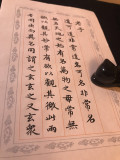 道可道非常道名可名非常名
無名天地之始有名萬物之母常無
欲以觀其妙常有欲以觀其徼此兩
者同出而異名同謂之玄玄之又玄衆